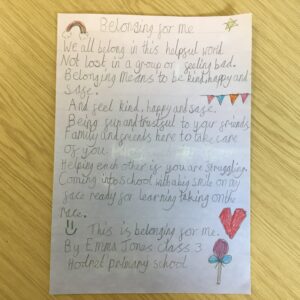 Belonging for me
We all belong in this helpful word
Not lost in a group or feeling bad.
Belonging means to be kind, happy and
sage.
And feel kind, happy and sage.
Being fun and trustful to your friends
Family and friends here to take care
of you
Helping each other if you are struggling.
Coming into school with a big smile on my
face ready for learning taking on the
race.
This is belonging for me.
By Emma Jones Class 3
Hodnet primary school